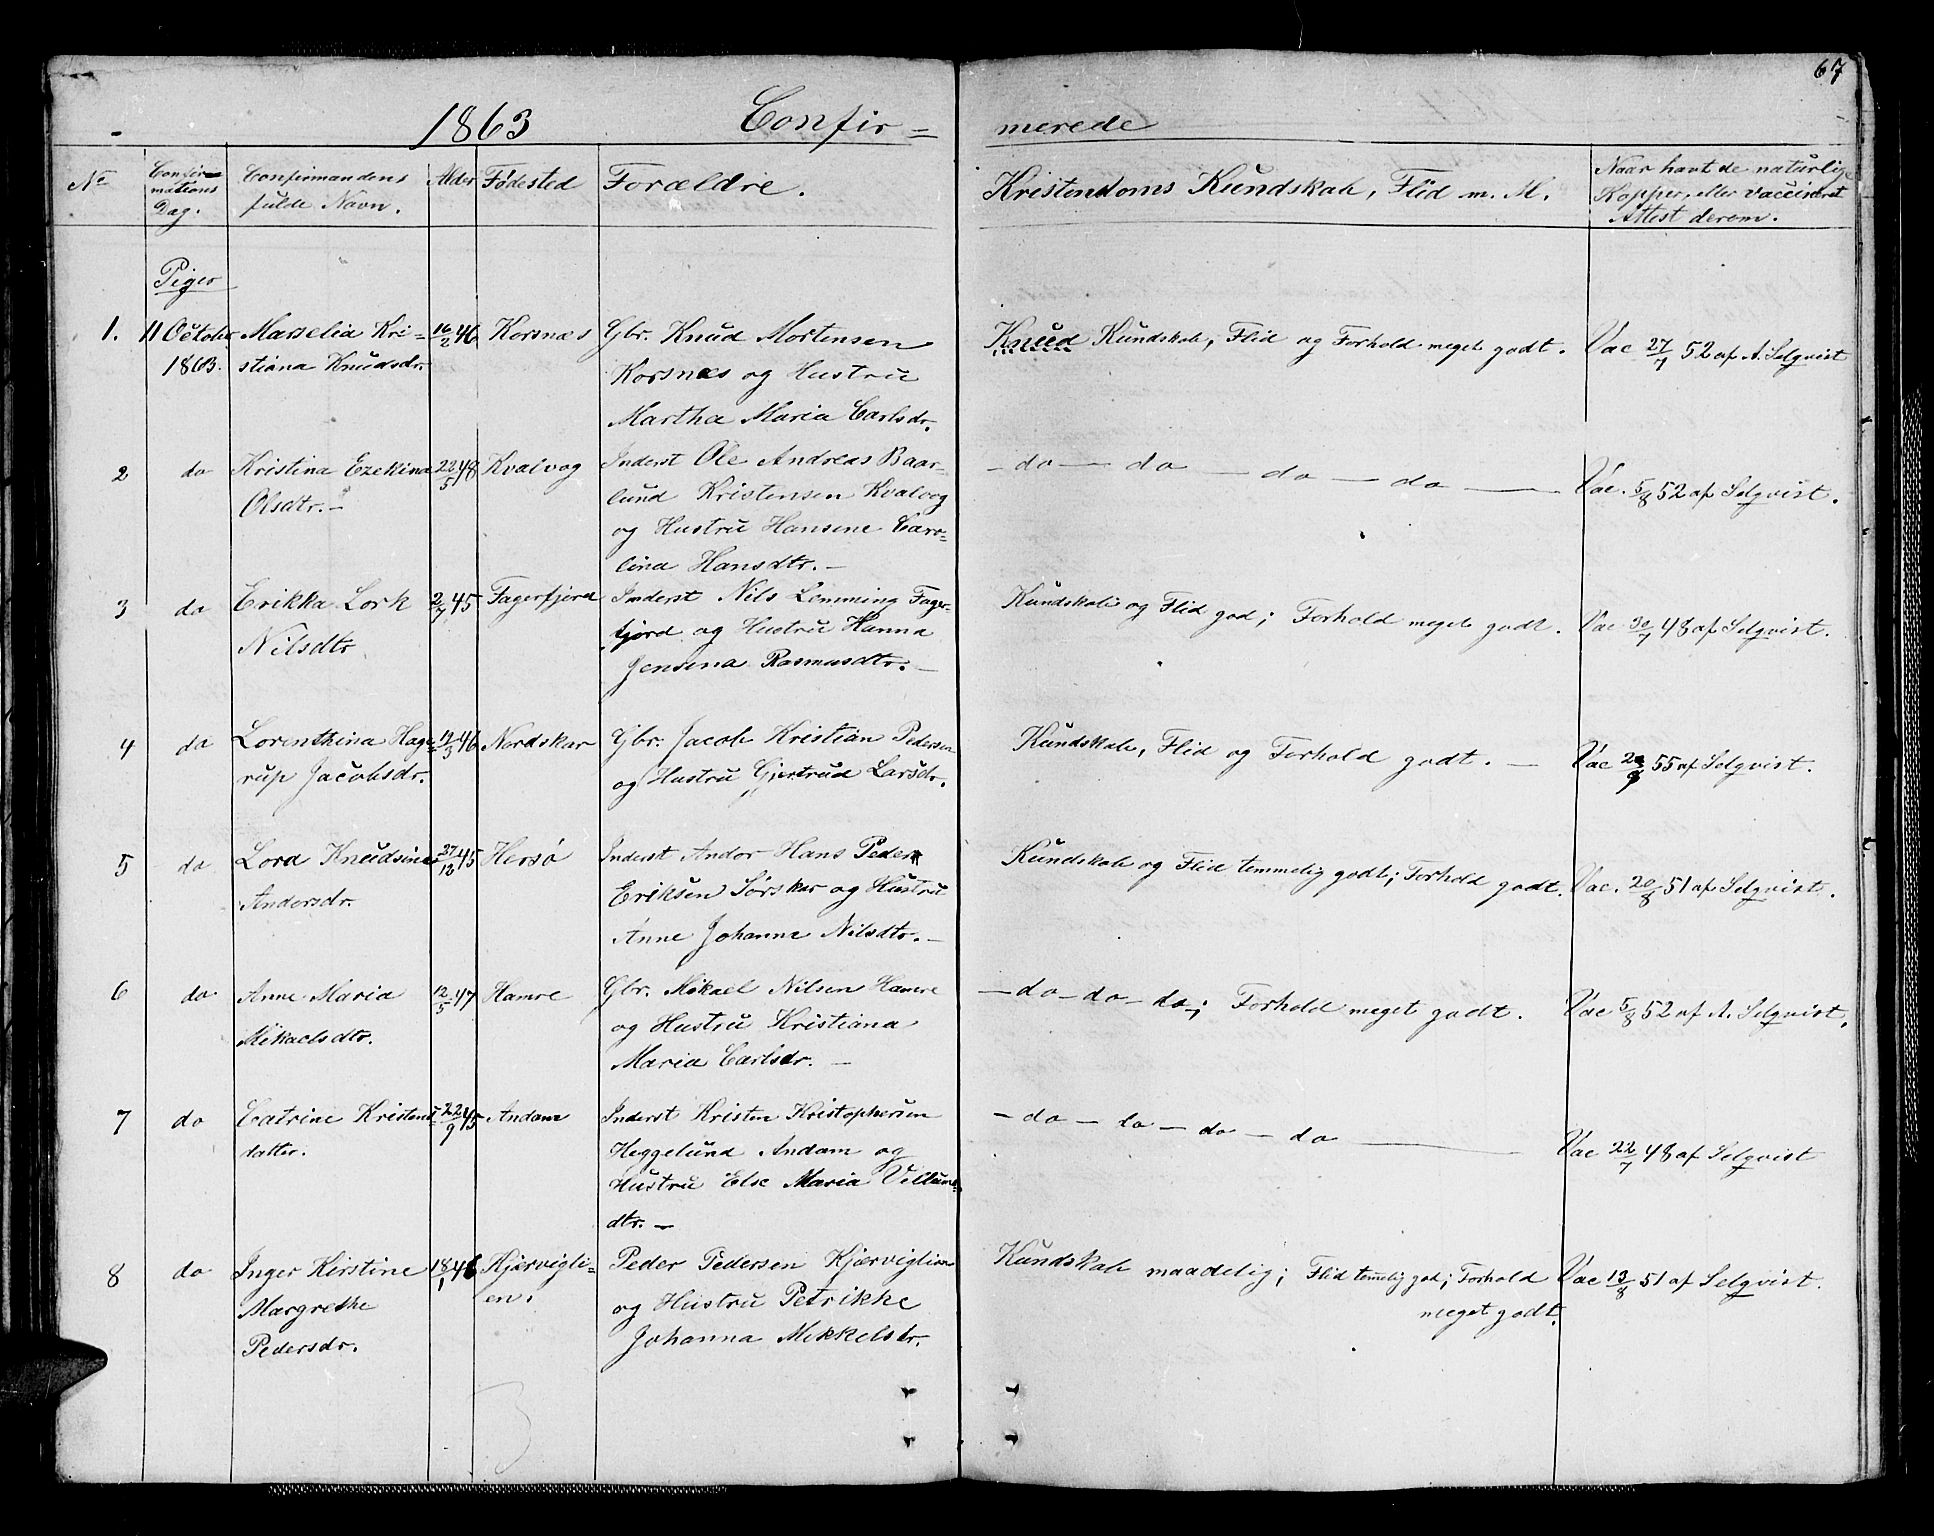 67
1863 Confir=
merede
No
Confir=
mations
Dag.
Confirmandens
fulde Navn.
Alder
Fødested
Forældre.
Kristendoms Kundskab, Flid m. M.
Naar havt de naturlige
Kopper, eller vaccineret
Attest derom.
Piger
1. 11 October Marselia Kri= 16/2 46 Korsnæs Gbr. Knud Mortensen Knud Kundskab, Flid og Forhold meget godt. Vac 27/7 52 af A. Selqvist
1863. stiana Knudsdr. Korsnæs og Hustru
Martha Maria Carlsdr.
2 do Kristina Ezekina 22/5 48 Kvalvog Inderst Ole Andreas Baar= – do – do – do – do – Vac. 5/8 52 af Selqvist.
Olsdtr. – lund Kristensen Kvalvog
og Hustru Hansine Caro=
lina Hansdtr. –
3 do Erikka Lork 2/7 45 Fagerfjord Inderst Nils Lemming Fager= Kundskab og Flid god; Forhold meget godt. Vac 30/7 48 af Selqvist.
Nilsdtr fjord og Hustru Hanna
Jensina Rasmusdtr. –
4 do Lorenthina Hage= 19/3 46 Nordskar Gbr. Jacob Kristian Pedersen Kundskab, Flid og Forhold godt. – Vac 55 af Selqvist.
rup Jacobsdr. og Hustru Gjertrud Larsdr.
5 do Lora Knudsine 27/12 45 Hersø Inderst Andor Hans Peder Kundskab og Flid temmelig godt; Forhold godt. Vac. 20/8 51 af Selqvist.
Andersdr. Eriksen Sørskar og Hustru
Anne Johanna Nilsdtr. –
6 do Anne Maria 12/5 47 Hamre Gbr. Mikael Nilsen Hamre – do – do – do –; Forhold meget godt. Vac 5/8 52 af A. Selqvist.
Mikaelsdtr. og Hustru Kristiana
Maria Carlsdr. –
7 do Catrine Kristens= 22/9 45 Andam Inderst Kristen Kristophersen – do – do – do – do – Vac 22/7 48 af Selqvist
datter. Heggelund Andam og
Hustru Else Maria Villums
dtr. –
8 do Inger Kirstine 18/1 46 Kjærvigli= Peder Pedersen Kjærviglien Kundskab maadelig; Flid temelig god; Forhold Vac 13/8 51 af Selqvist.
Margrethe en. og Hustru Petrikke meget godt.
Pedersdr. Johanna Mikkelsdr.